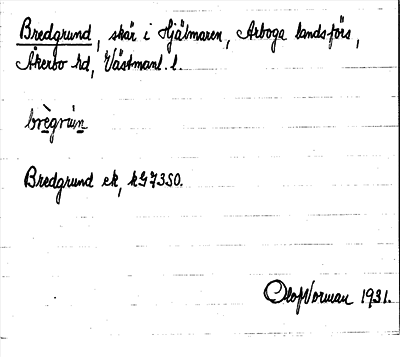 Bredgrund, skär i Hjälmaren, Arboga landsförs,
Åkerbo hd, Västmanl. l.
brègrùn
Bredgrund ek, kG 7350.
Olof Norman 1931.